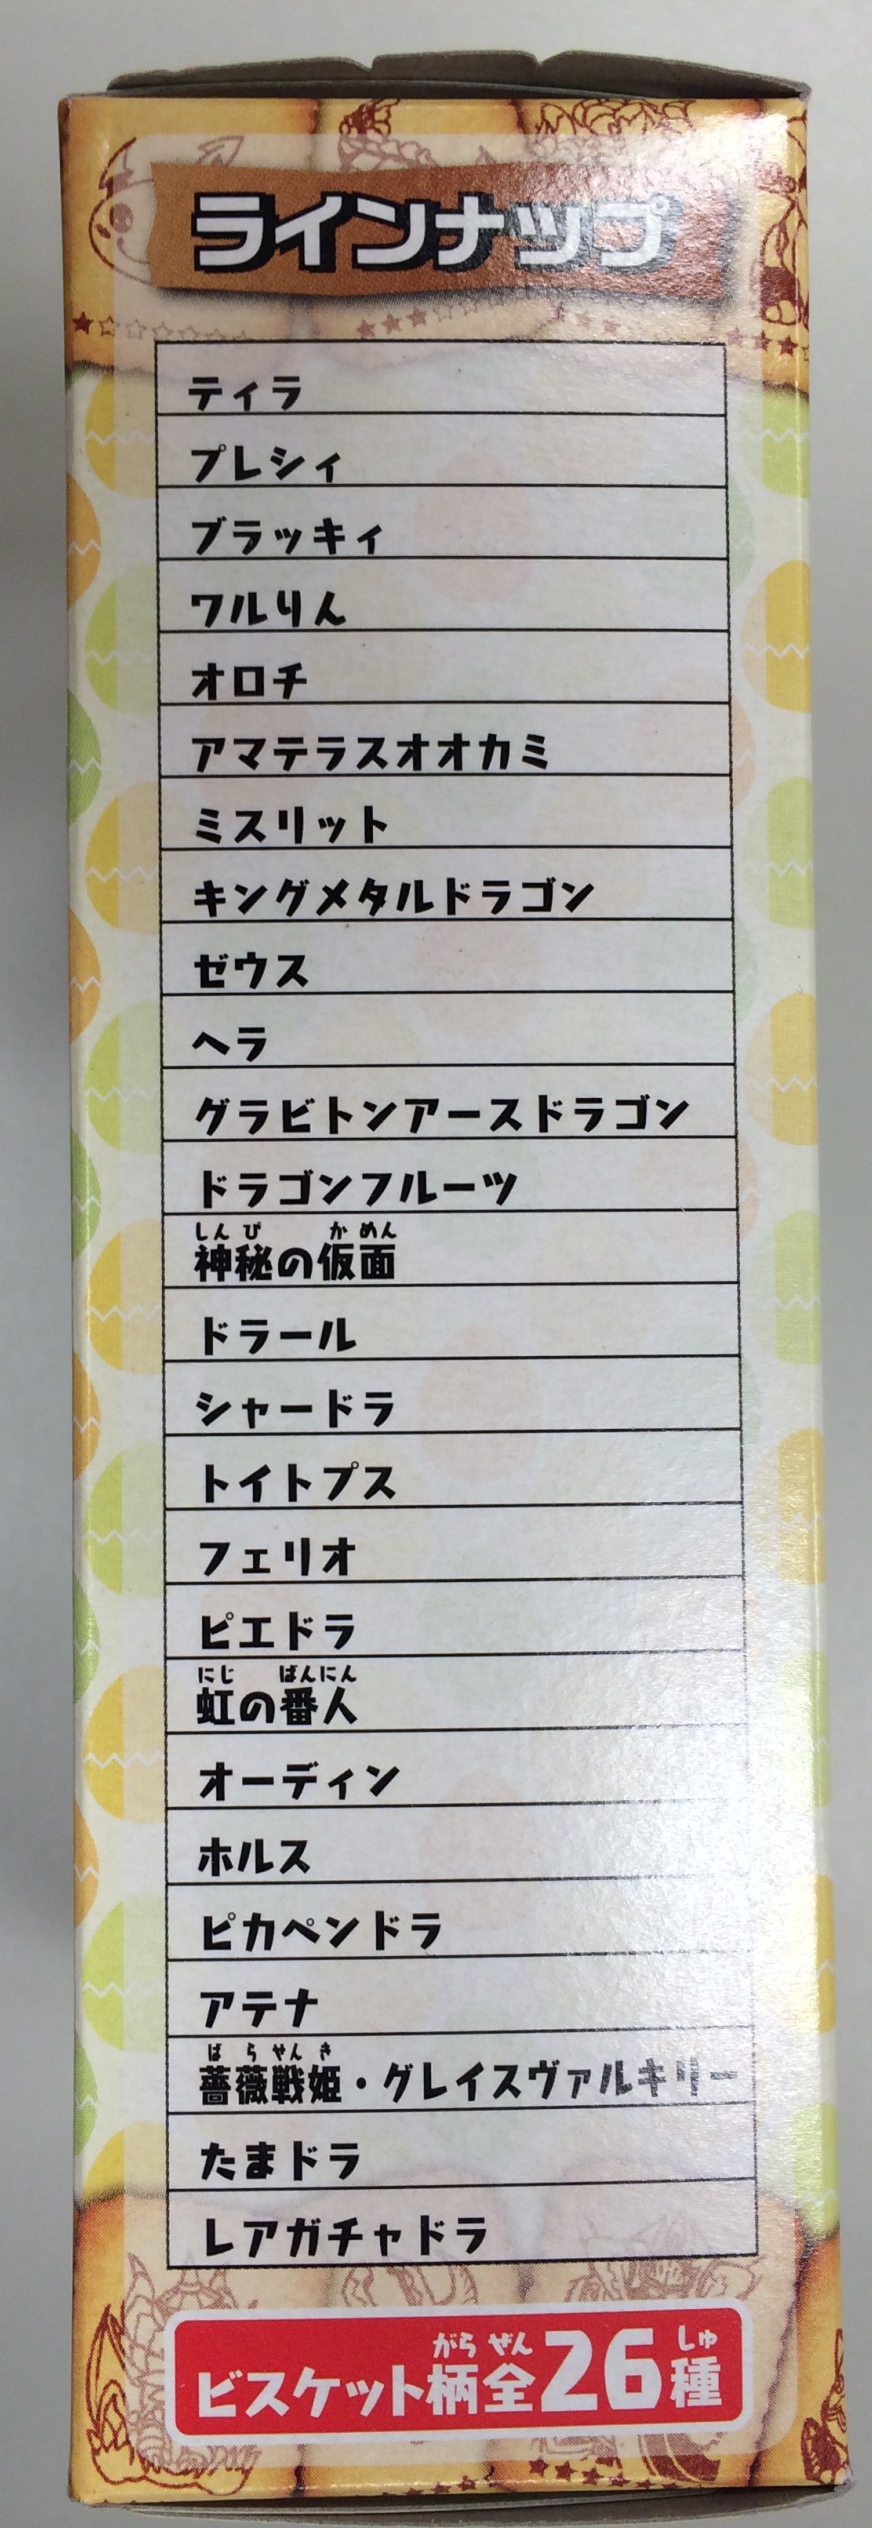 ラインナップ
ティラ
プレシィ
ブラッキィ
ワルりん
オロチ
アマテラスオオカミ
ミスリット
キングメタルドラゴン
ゼウス
ヘラ
グラビトンアースドラゴン
ドラゴンフルーツ
しんぴ かめん
神秘の仮面
ドラール
シャードラ
トイトプス
フェリオ
ピエドラ
にじ ばんにん
虹の番人
オーディン
ホルス
ピカペンドラ
アテナ
ばらせんき
薔薇戦姫・グレイスヴァルキリー
たまドラ
レアガチャドラ
がら ぜん しゅ
ビスケット柄全26種